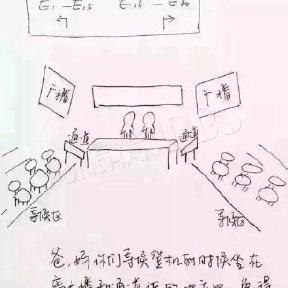 E₁—E₁₅ E₁₆—E₃₀
广播 广播
通道 通道
等候区 等候区
爸，妈你们等候登机的时候坐在